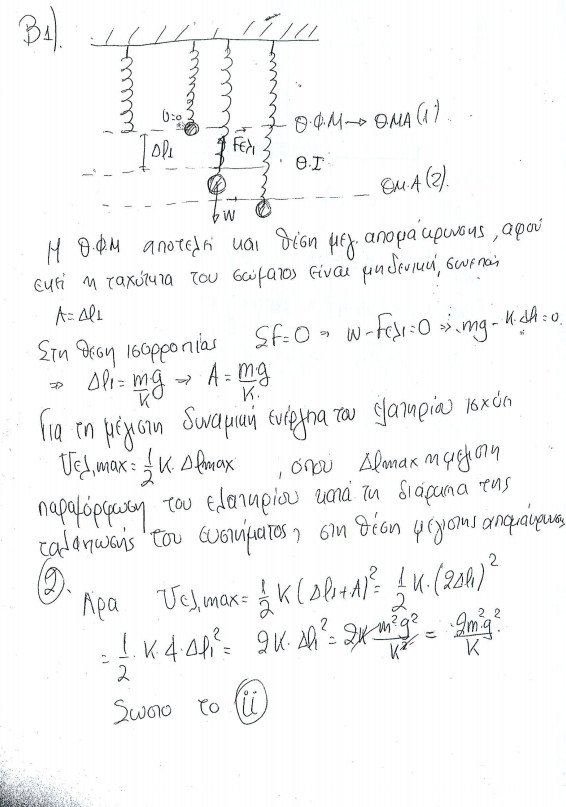 Β1).
υ=0
Θ.Φ.Μ → Θ.Μ.Α (1).
Δl₁
Fελ₁
Θ.Ι
Θ.Μ.Α (2).
W
Η Θ.Φ.Μ αποτελεί και θέση μεγ. απομάκρυνσης, αφού
εκεί η ταχύτητα του σώματος είναι μηδενική, συνεπώς
Α=Δl₁
Στη θέση ισορροπίας ΣF=0 ⇒ W-Fελ₁=0 ⇒ mg - K·Δl₁=0
⇒ Δl₁ = m·g/K ⇒ A = m·g/K.
Για τη μέγιστη δυναμική ενέργεια του ελατηρίου ισχύει
Uελ,max = 1/2 K·Δlmax , όπου Δlmax η μέγιστη
παραμόρφωση του ελατηρίου κατά τη διάρκεια της
ταλάντωσης του συστήματος, στη θέση μέγιστης απομάκρυνσης
2.
Άρα Uελ,max = 1/2 K (Δl₁+A)² = 1/2 K·(2Δl₁)²
= 1/2·K·4·Δl₁² = 2K·Δl₁² = 2K m²g²/K² = 2m²·g²/K
Σωστό το ii